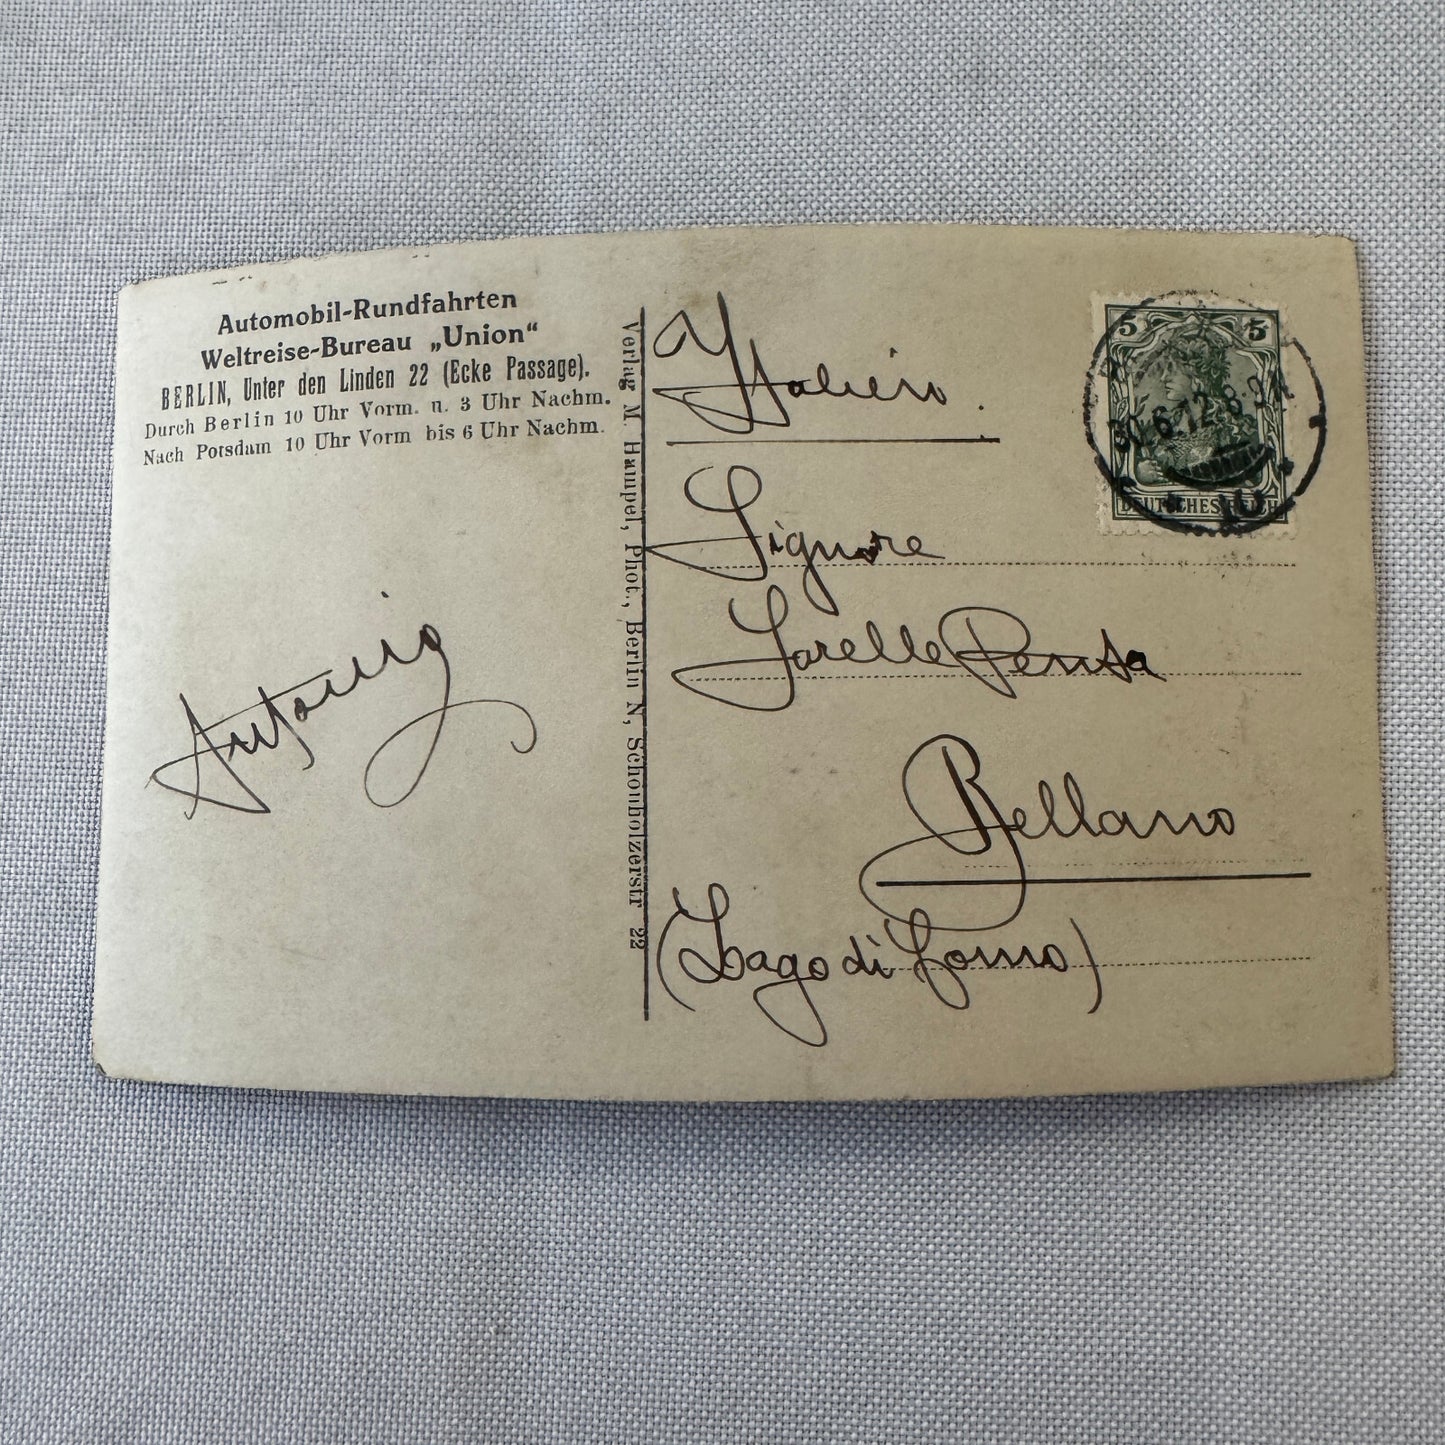 Automobil-Rundfahrten
Weltreise-Bureau „Union“
BERLIN, Unter den Linden 22 (Ecke Passage).
Durch Berlin 10 Uhr Vorm. u. 3 Uhr Nachm.
Nach Potsdam 10 Uhr Vorm bis 6 Uhr Nachm.
Antonio
Verlag M. Hampel, Phot., Berlin N, Schönholzerstr 22
Italien.
Signore
Sorelle Penta
Bellano
(Lago di Como)
5 5
DEUTSCHES REICH
30.6.12.8-9N